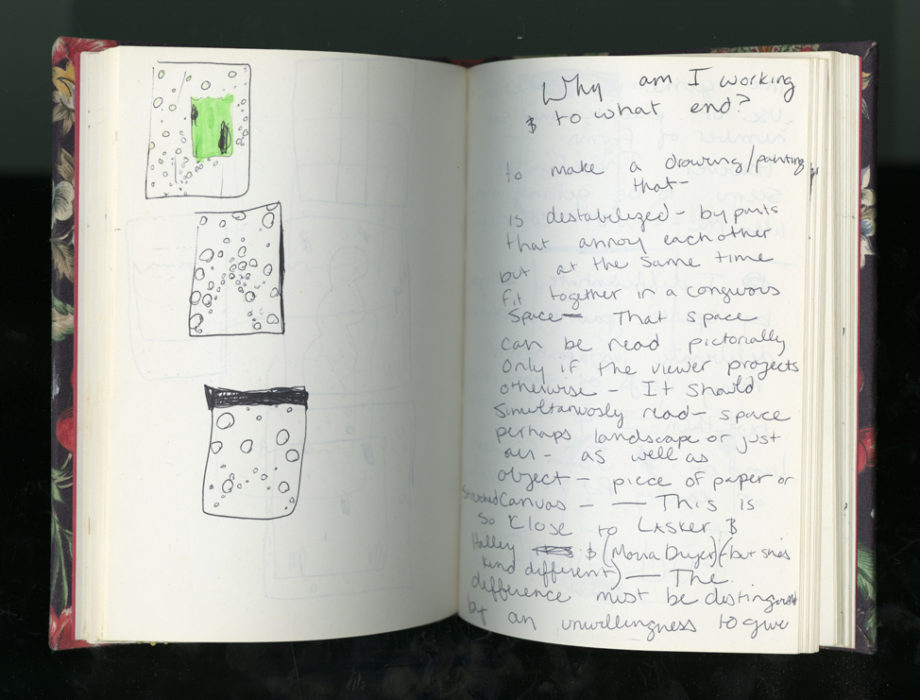 Why am I working
$ to what end?
to make a drawing/painting
that—
is destabelized — by parts
that annoy each other
but at the same time
fit together in a conguous
Space — That space
can be read pictorially
Only if the viewer projects
otherwise — It should
Simultanuosly read — space
perhaps landscape or just
air — as well as
object — piece of paper or
stretched Canvas — — This is
so close to LASKER $
Halley $ (Moira Dryer) (but she's
kind different) — The
difference must be
by an unwillingness to give